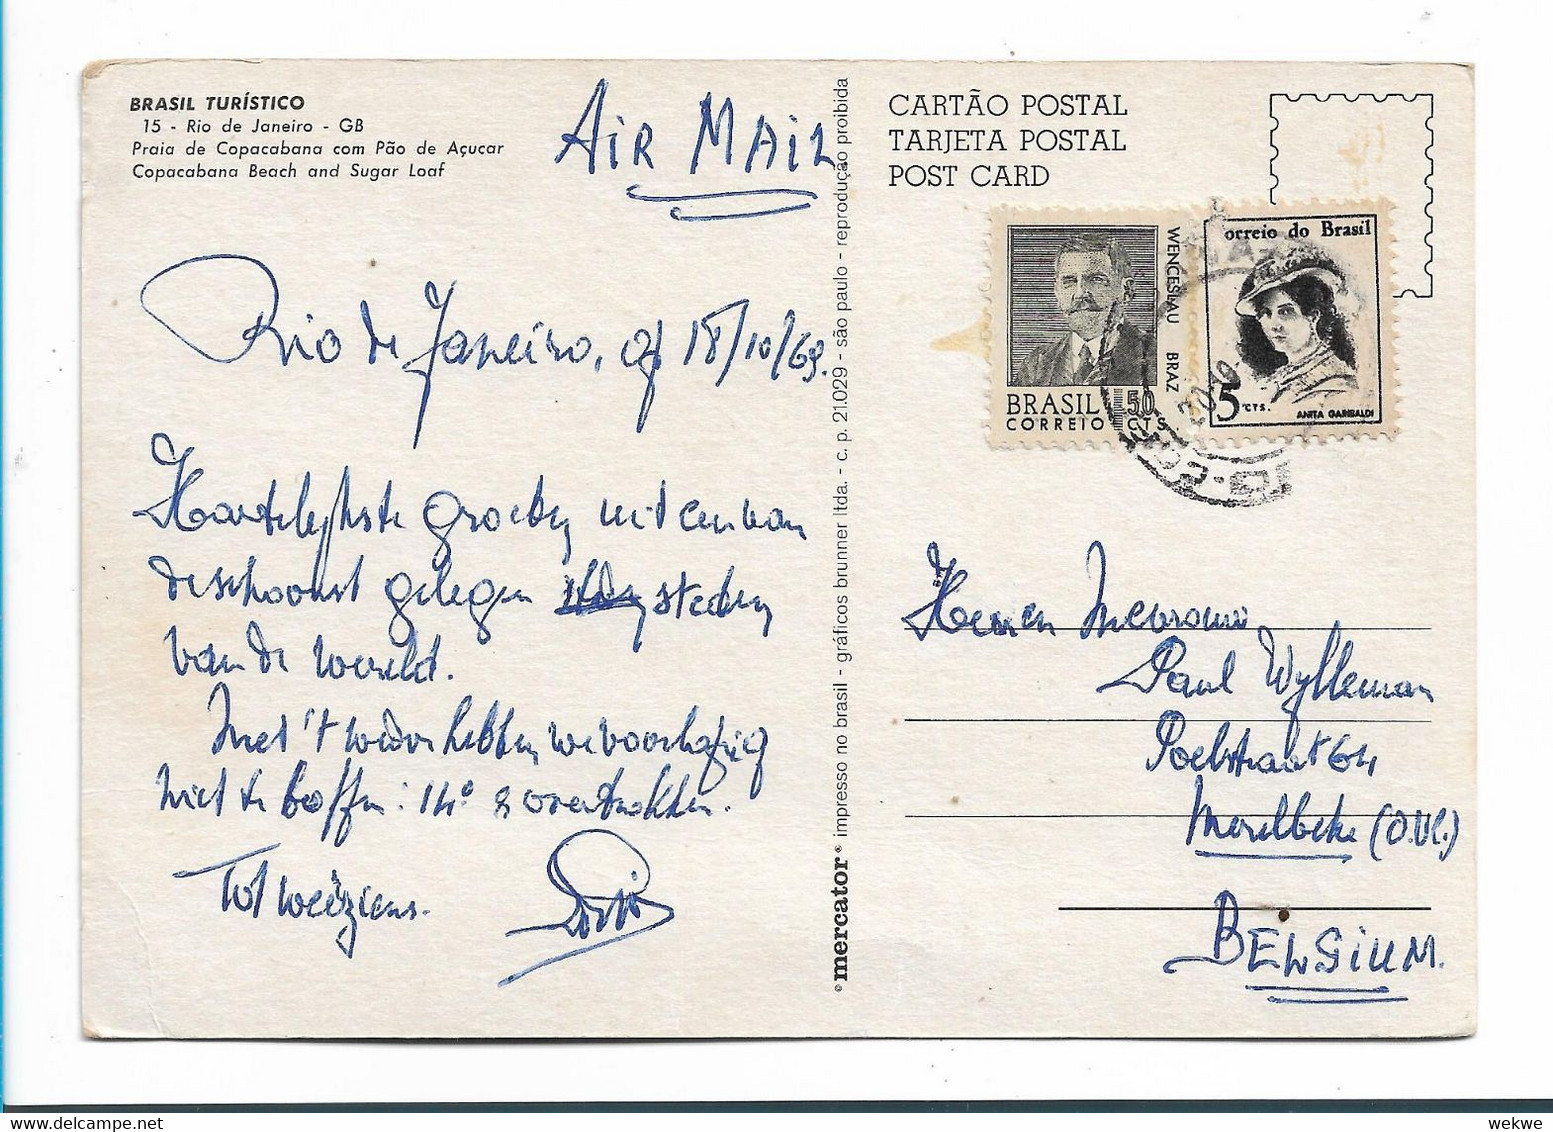 BRASIL TURÍSTICO
15 - Rio de Janeiro - GB
Praia de Copacabana com Pão de Açucar
Copacabana Beach and Sugar Loaf
AIR MAIL
Rio de Janeiro, 18/10/69.
Hartelijkste groeten uit een van
de schoonst gelegen steden
van de wereld.
Met 't weder hebben we voorlopig
niet te boffen: 14° & overtrokken.
Tot weerziens.
mercator
impresso no brasil - gráficos brunner ltda. - c. p. 21.029 - são paulo - reprodução proibida
CARTÃO POSTAL
TARJETA POSTAL
POST CARD
WENCESLAU BRAZ
BRASIL 50
CORREIO CTS.
orreio do Brasil
5 CTS.
ANITA GARIBALDI
Mevrouw
Paul Wylleman
Poelstraat 64
Merelbeke (O.Vl.)
BELGIUM.
wekwe